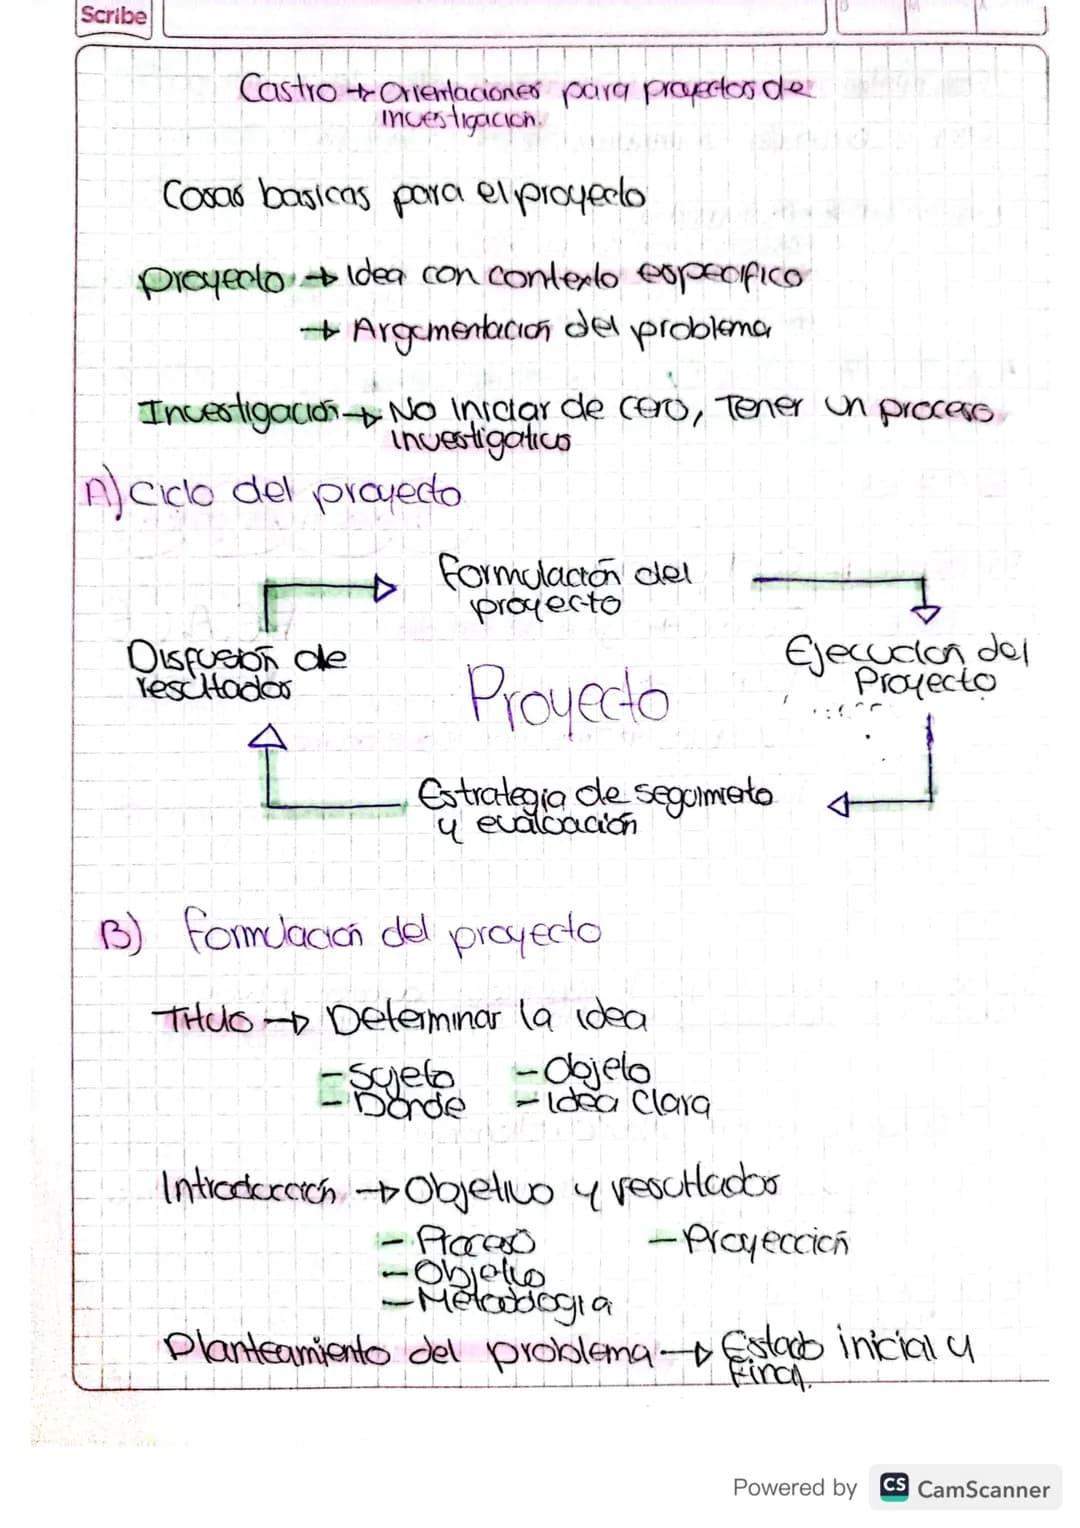 Scribe
Castro → Orientaciones para proyectos de
investigación.
Cosas basicas para el proyecto
proyecto → Idea con contexto especifico
→ Argumentación del problema
Investigación → No iniciar de cero, Tener un proceso
investigativo
A) Ciclo del proyecto
formulación del
proyecto
Disfusión de
resultados
Ejecución del
Proyecto
Proyecto
Estrategia de seguimiento
y evaluación
B) formulación del proyecto
Titulo → Determinar la idea
- Sujeto - Objeto
- Dónde - Idea Clara
Introducción → Objetivo y resultados
- Proceso - Proyección
- Objetivo
- Metodología
Planteamiento del problema → Estado inicial y
Final.
Powered by CS CamScanner